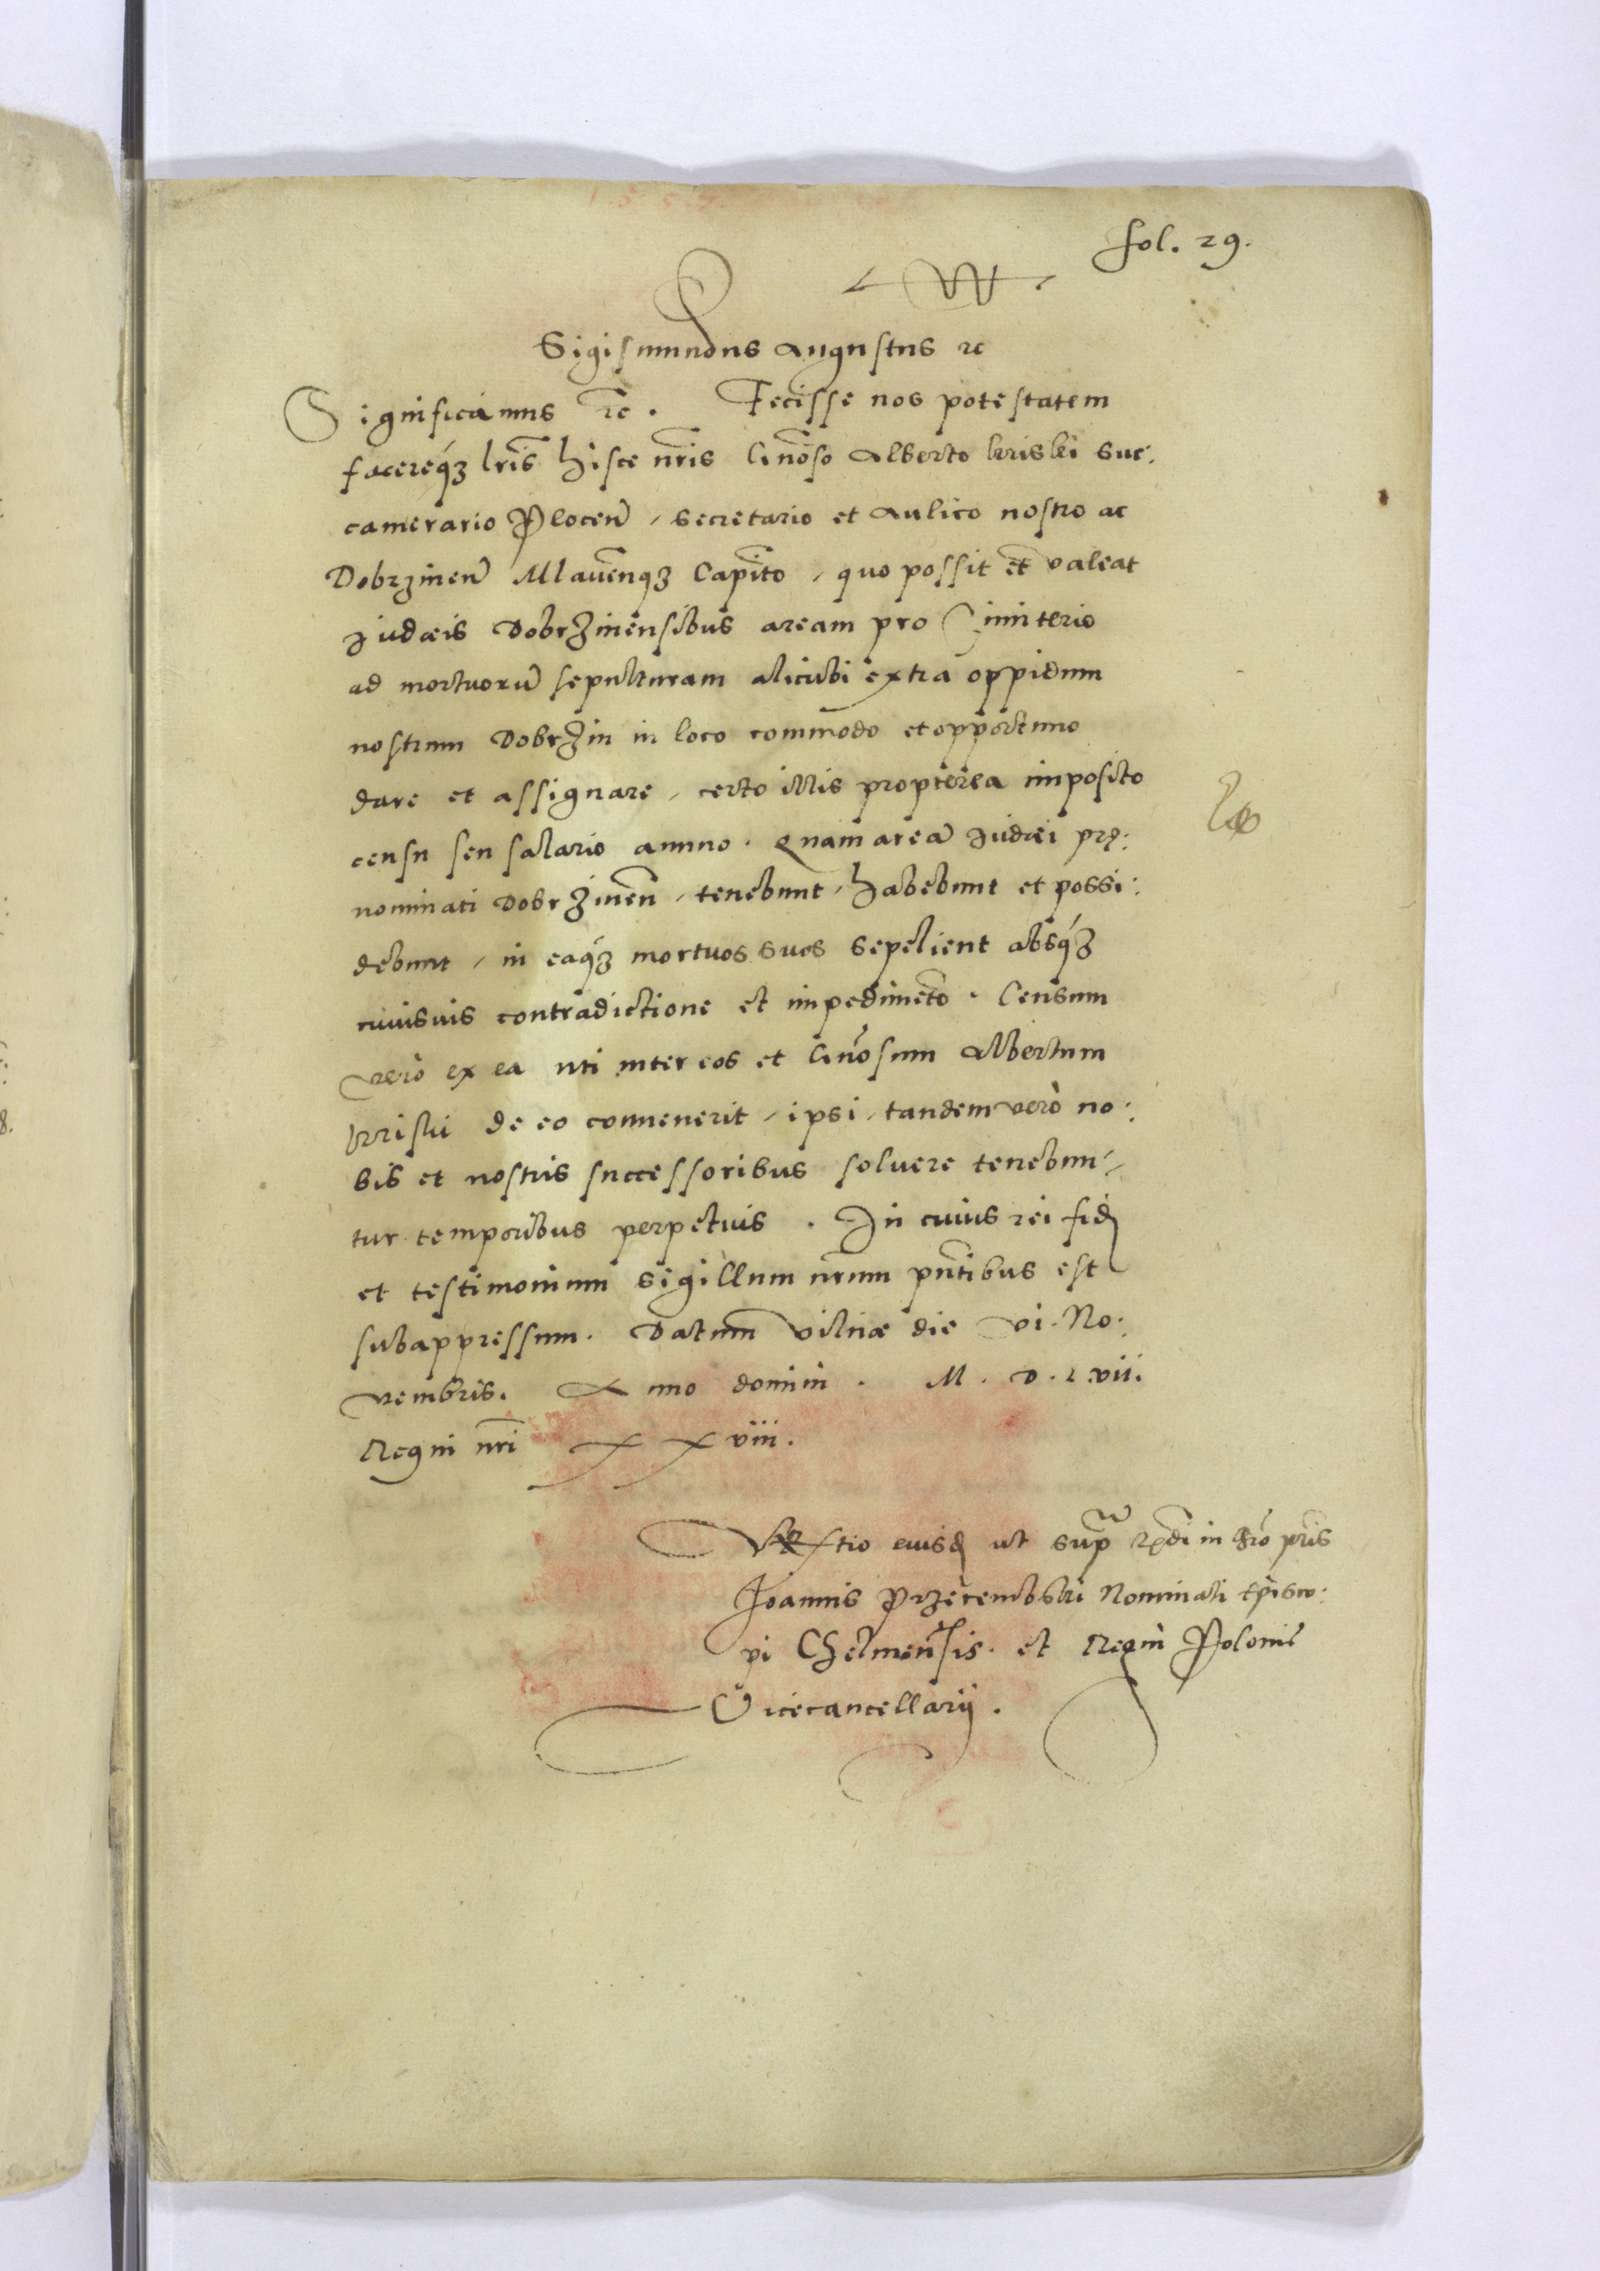 fol. 29.
Sigismundus Augustus etc
Significamus etc. Fecisse nos potestatem
facereqꝫ lris hisce nris Gnoso Alberto kriski Suc:
camerario Plocen, Secretario et Aulico nostro ac
Dobrzinen Mlavenqꝫ Capito, quo possit et valeat
Judæis Dobrzinensibus aream pro Cimiterio
ad mortuoru sepulturam alicubi extra oppidum
nostrum Dobrzin in loco commodo et opportuno
dare et assignare, certo illis propterea imposito
censu seu salario annuo. Quam area Judæi pre:
nominati Dobrzinen, tenebunt, habebunt et possi:
debunt, in eaqꝫ mortuos suos sepelient absqꝫ
cuiusvis contradictione et impedimeto. Censum
vero ex ea uti inter eos et Gnosum Albertum
kriski de eo convenerit, ipsi, tandem vero no:
bis et nostris successoribus solvere tenebun:
tur temporibus perpetuis. In cuius rei fidē
et testimonium sigillum nrum pntibus est
subappressum. Datum Vilnæ die vi. No:
vembris. Anno domini. M.D.Lvii.
Regni nri xxviii.
eiusd ut supra Rndi in Chro pris
Joannis Przerembski Nominati Episco:
pi Chelmensis. et Regni Poloniæ
Vicecancellarij.